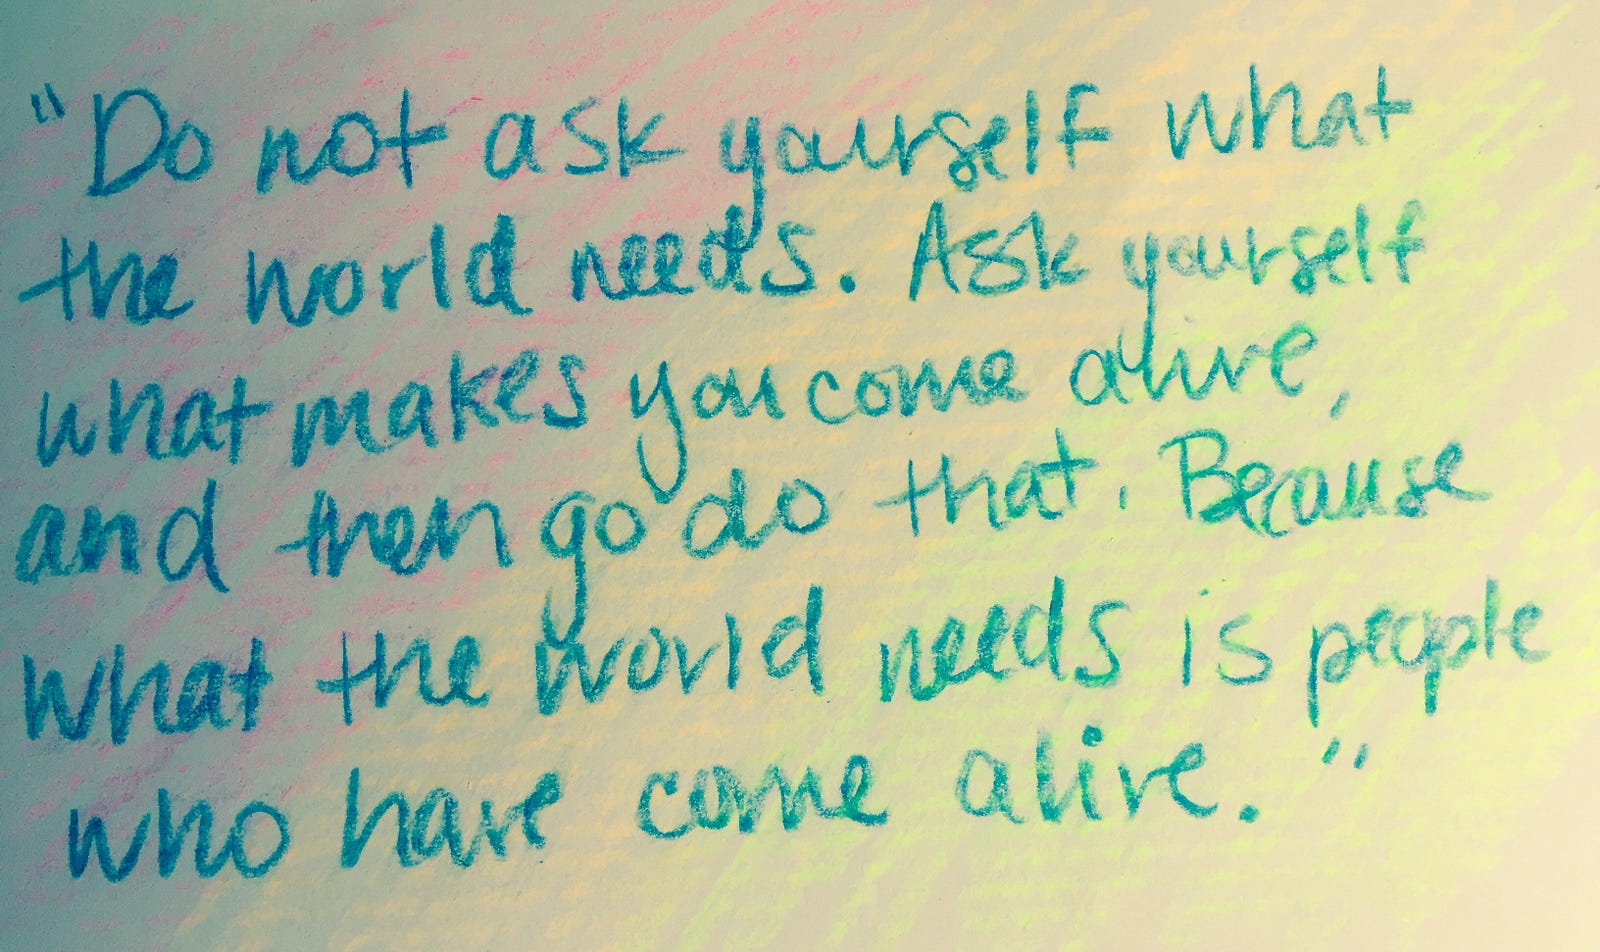 "Do not ask yourself what
the world needs. Ask yourself
what makes you come alive,
and then go do that. Because
what the world needs is people
who have come alive."